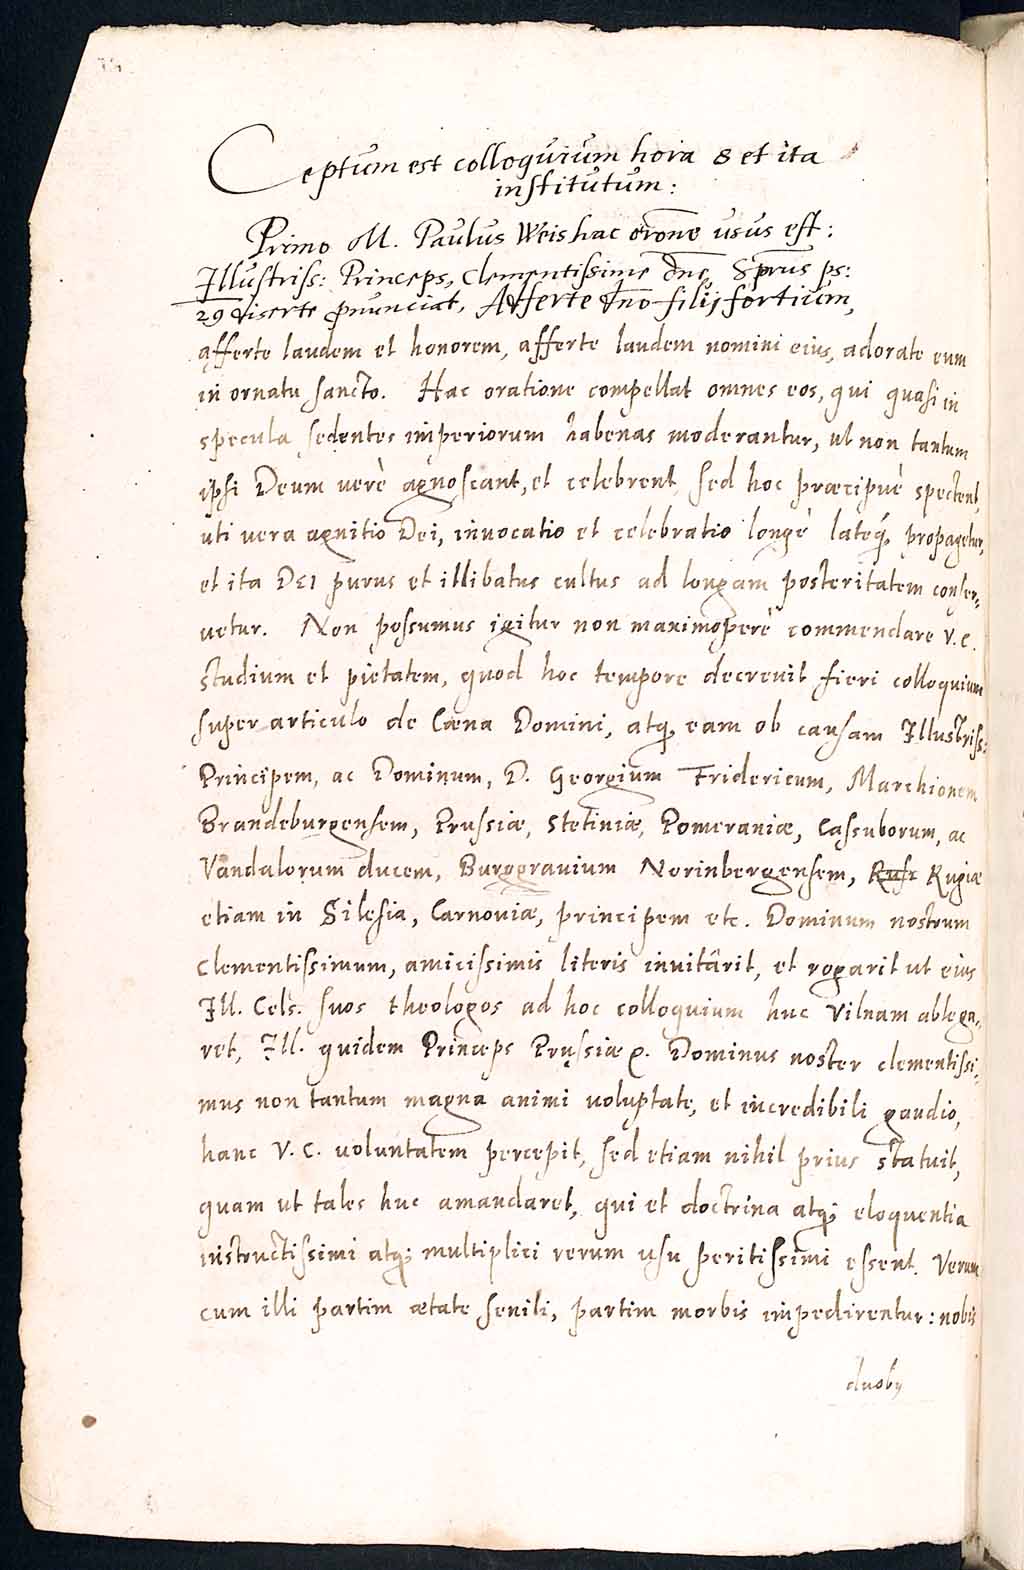 Ceptum est colloquium hora 8 et ita
institutum:
Primo M. Paulus Weis hac orōne usus est:
Illustriss: Princeps, Clementissime dñe, Sp̄rus ps:
29 diserte p̄nunciat, Afferte dn̄o filij fortium,
afferte laudem et honorem, afferte laudem nomini eius, adorate eum
in ornatu sancto. Hac oratione compellat omnes eos, qui quasi in
specula sedentes imperiorum habenas moderantur, ut non tantum
ipsi Deum verè agnoscant, et celebrent, sed hoc præcipuè spectent,
uti vera agnitio Dei, invocatio et celebratio longè lateq́ propagetur,
et ita DEI purus et illibatus cultus ad longam posteritatem conser,,
vetur. Non possumus igitur non maximoperè commendare V. C.
studium et pietatem, quod hoc tempore decrevit fieri colloquium
super articulo de Cæna Domini, atq, eam ob causam Illustriss:
Principem, ac Dominum, D. Georgium Fridericum, Marchionem
Brandeburgensem, Prussiæ, Stetiniæ, Pomeraniæ, Cassuborum, ac
Vandalorum ducem, Burggravium Norinbergensem, Rusi Rugiæ
etiam in Silesia, Carnoviæ, principem etc. Dominum nostrum
Clementissimum, amicissimis literis invitârit, et rogarit ut eius
Ill. Cels. suos theologos ad hoc colloquium huc Vilnam ablega,,
ret, Ill. quidem Princeps Prussiæ &. Dominus noster clementissi,,
mus non tantum magna animi voluptate, et incredibili gaudio,
hanc V. C. voluntatem percepit, sed etiam nihil prius statuit,
quam ut tales huc amandaret, qui et doctrina atq; eloquentia
instructissimi atq; multiplici rerum usu peritissimi essent. Verum
cum illi partim ætate senili, partim morbis impedirentur: nobis
duoby